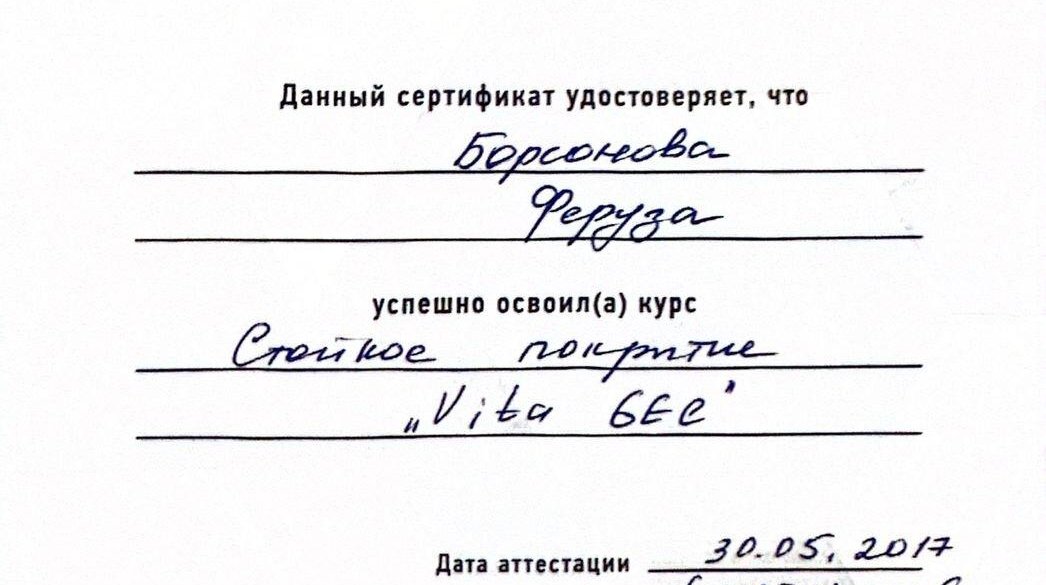 Данный сертификат удостоверяет, что
Борсонова
Феруза
успешно освоил(а) курс
Стойкое покрытие
„Vita GEL"
Дата аттестации 30.05.2017